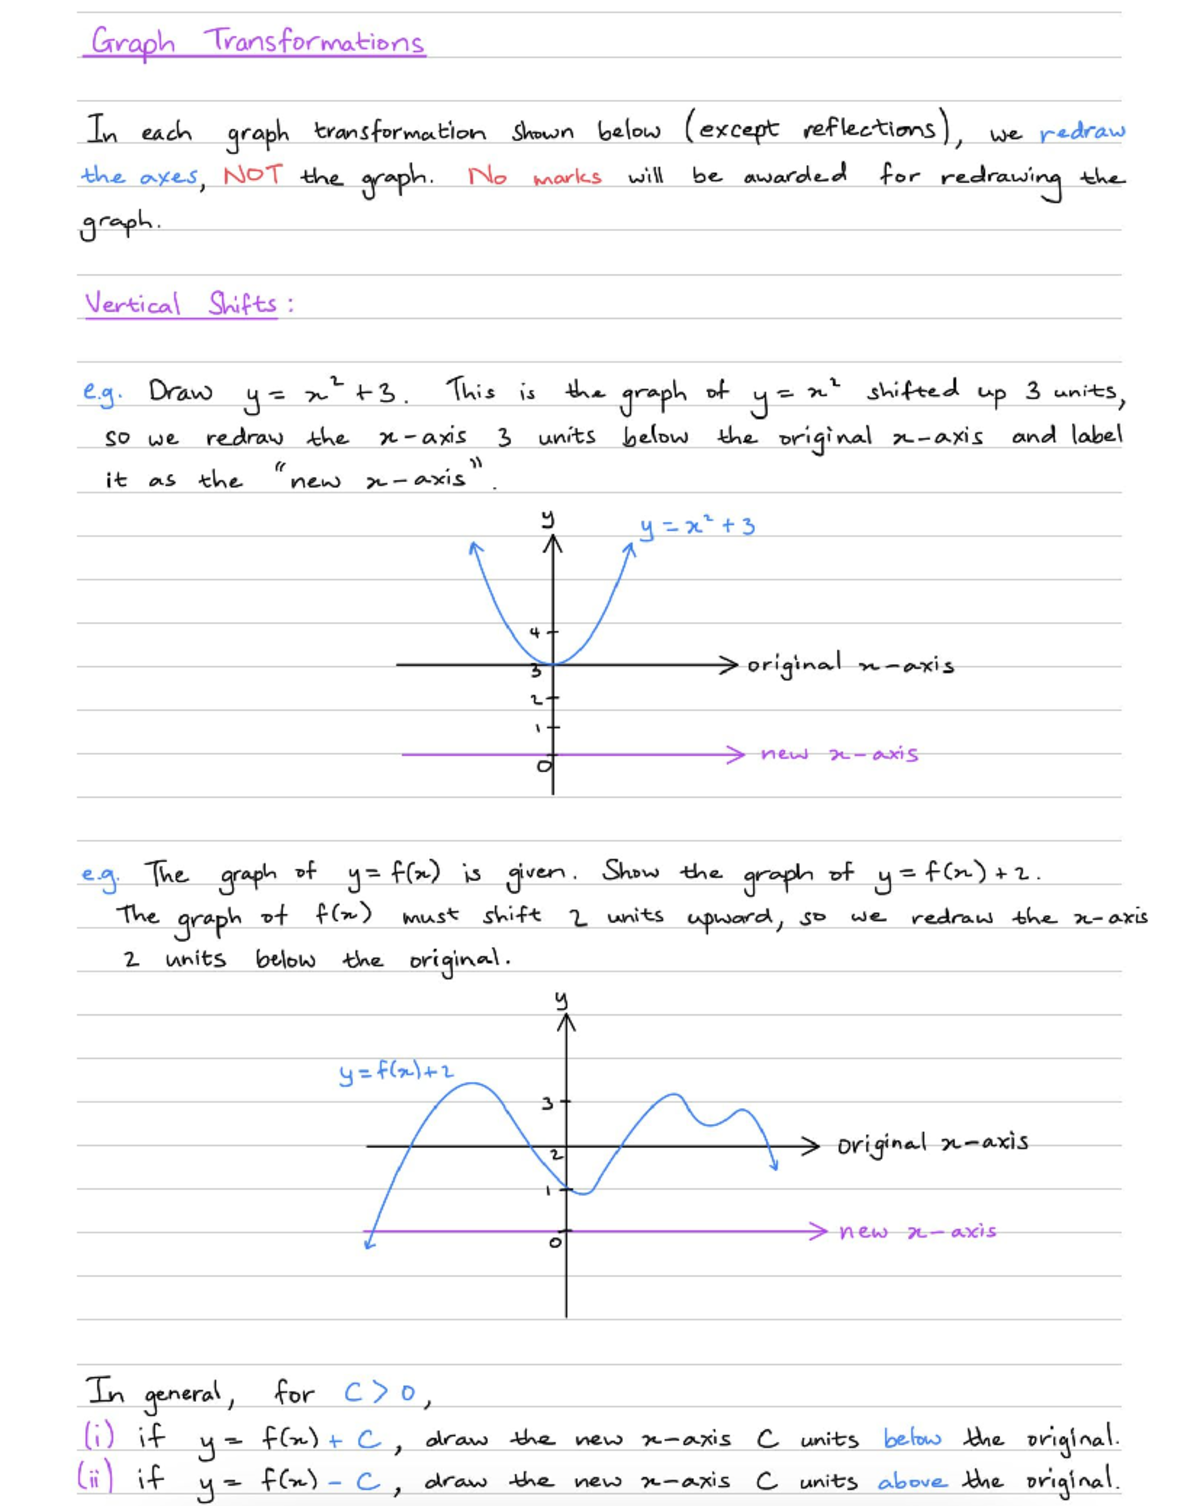 Graph Transformations
In each graph transformation shown below (except reflections), we redraw
the axes, NOT the graph. No marks will be awarded for redrawing the
graph.
Vertical Shifts:
e.g. Draw y = x² + 3. This is the graph of y = x² shifted up 3 units,
so we redraw the x-axis 3 units below the original x-axis and label
it as the "new x-axis".
y
y = x² + 3
4
original x-axis
3
2
1
new x-axis
0
e.g. The graph of y = f(x) is given. Show the graph of y = f(x) + 2.
The graph of f(x) must shift 2 units upward, so we redraw the x-axis
2 units below the original.
y
y = f(x) + 2
3
original x-axis
2
1
new x-axis
0
In general, for C > 0,
(i) if y = f(x) + C, draw the new x-axis C units below the original.
(ii) if y = f(x) - C, draw the new x-axis C units above the original.